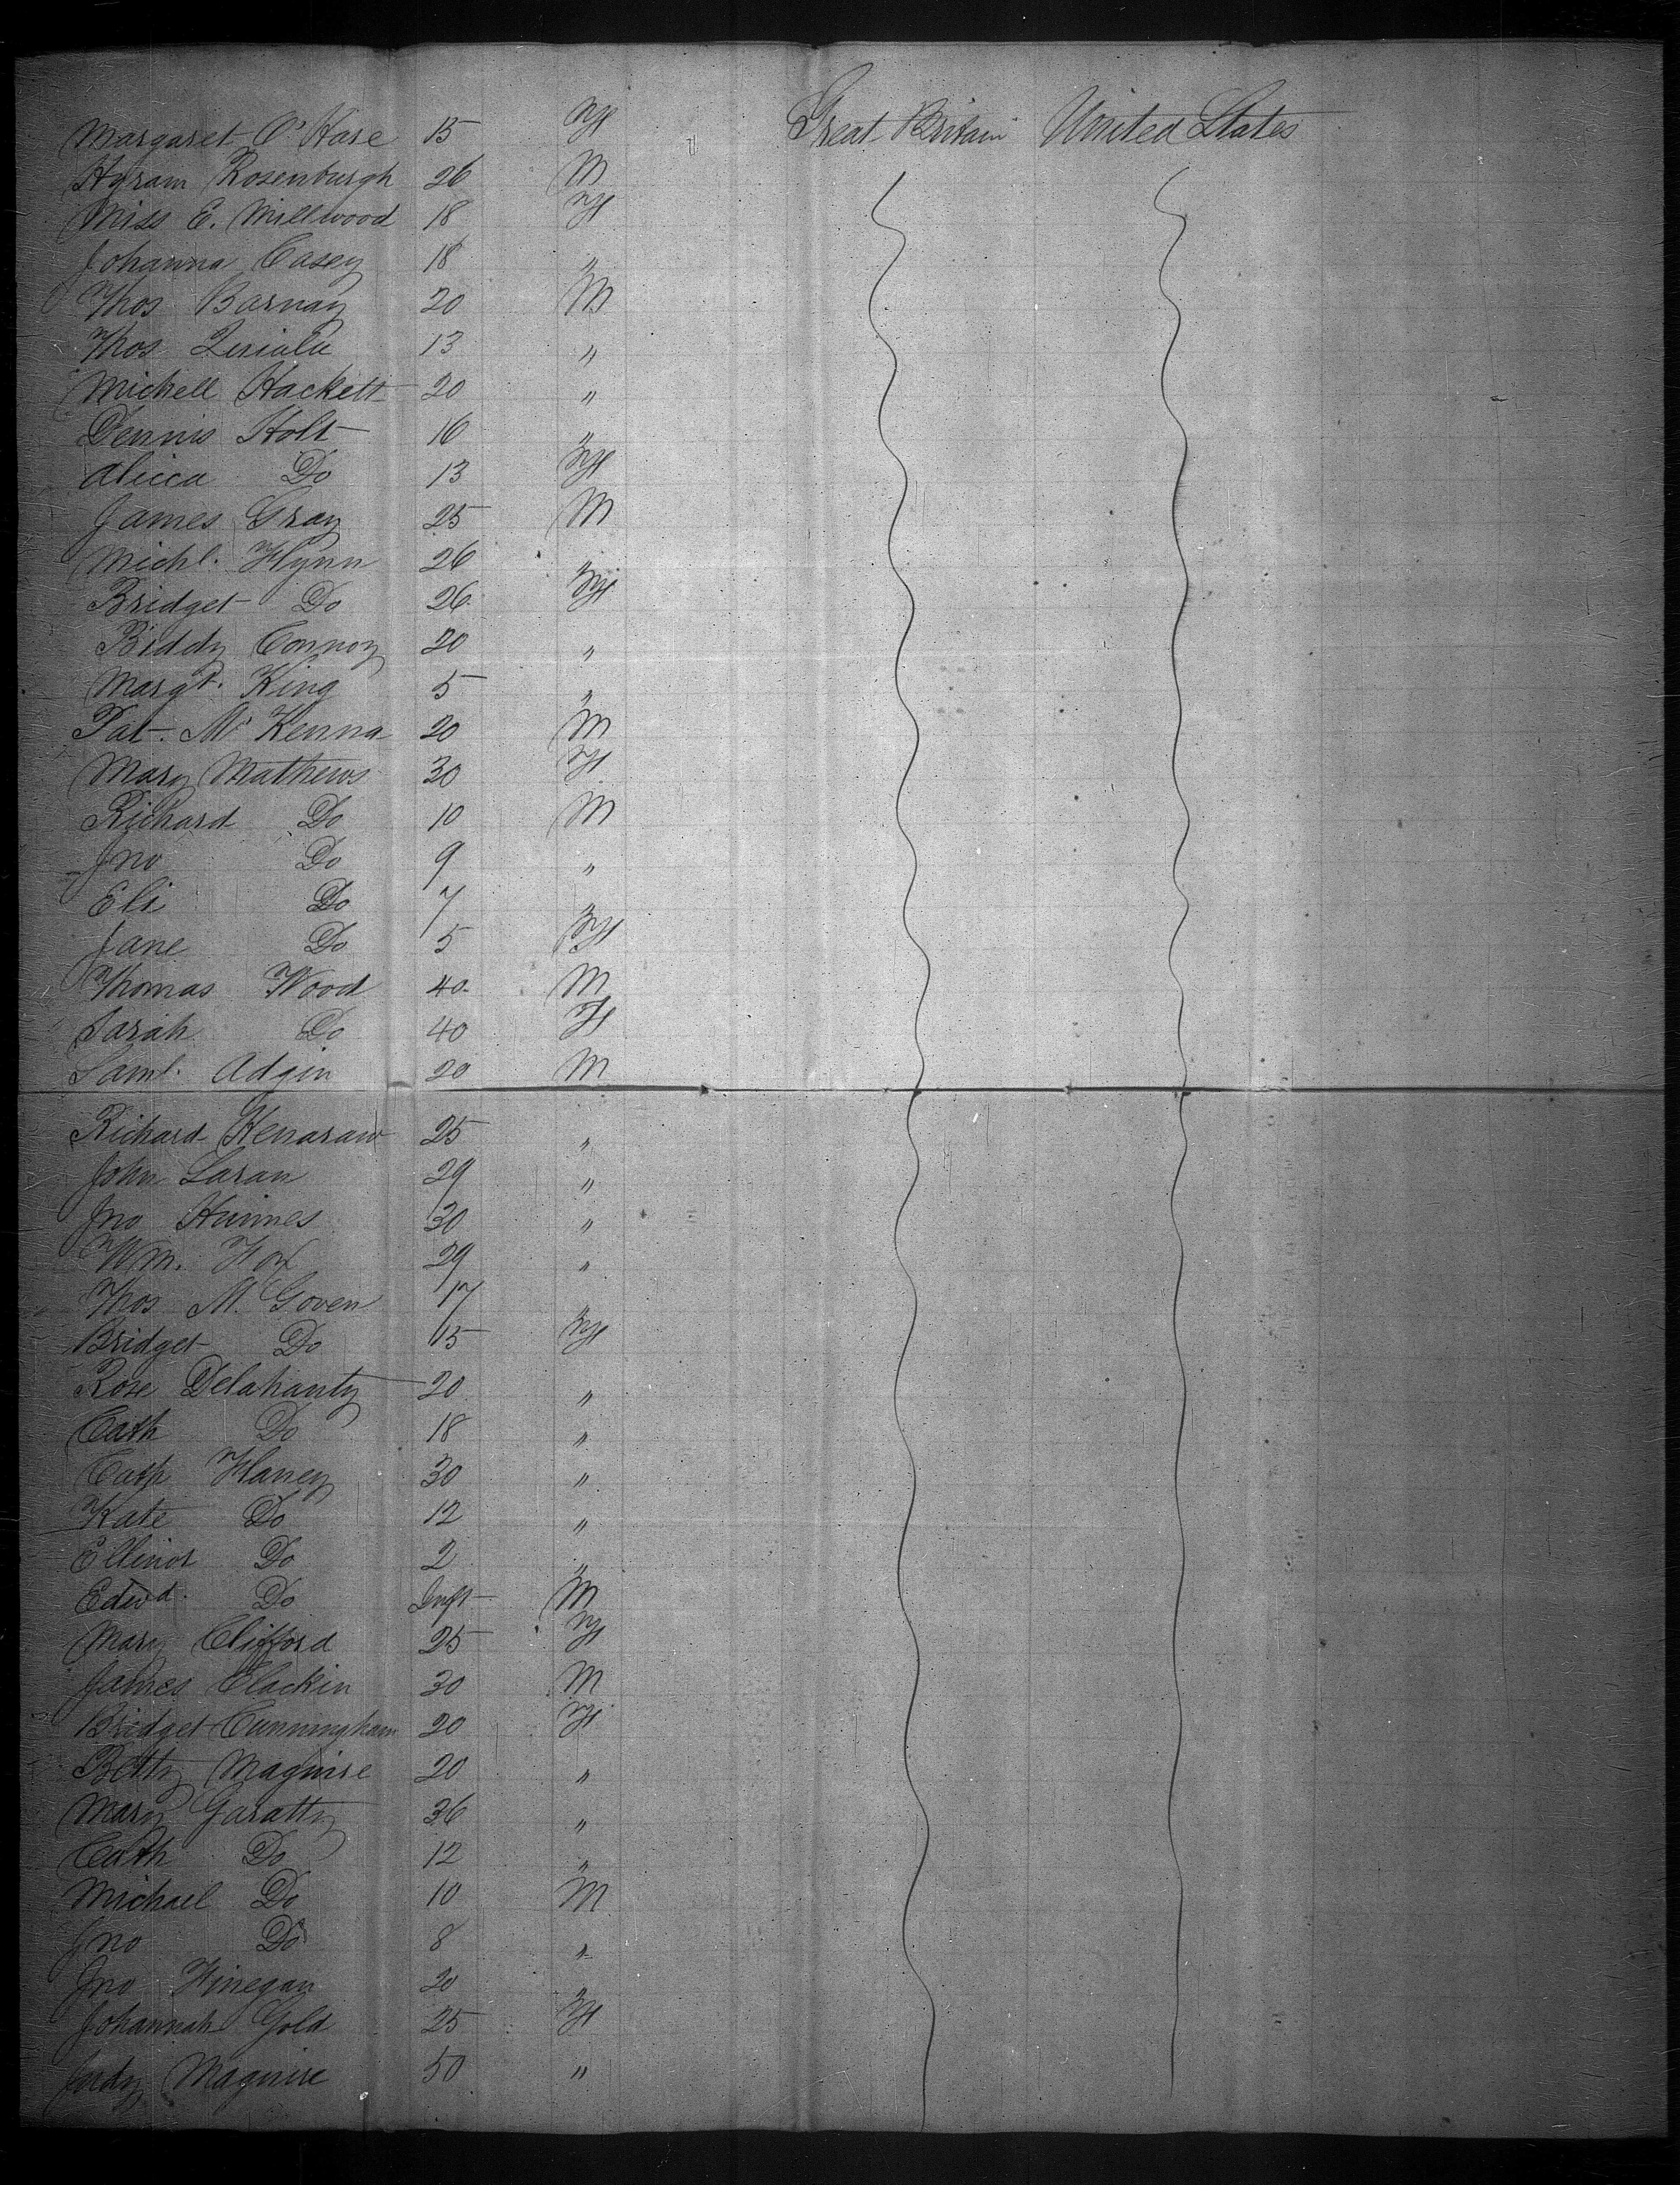 Margaret O'Hare 15 F Great Britain United States
Hyram Rosenburgh 26 M
Miss E. Millwood 18 F
Johanna Casey 18 "
Thos Barnay 20 M
Thos 13 "
Michell Hackett 20 "
Dennis Holt 16 "
Alicca Do 13 F
James Gray 25 M
Michl. Flynn 26 "
Bridget Do 26 F
Biddy Connoy 20 "
Margt. King 5 "
Pat. Mc Kenna 20 M
Mary Mathews 30 F
Richard Do 10 M
Jno Do 9 "
Eli Do 7 "
Jane Do 5 F
Thomas Wood 40 M
Sarah Do 40 F
Saml. Adgin 20 M
Richard 25 "
John Laran 29 "
Jno 30 "
Wm. Fox 29 "
Thos M. Goven 17 "
Bridget Do 15 F
Rose Delahanty 20 "
Cath Do 18 "
Cath Flaney 30 "
Kate Do 12 "
Ellinor Do 2 "
Edwd. Do Inft M
Mary Clifford 25 F
James Clackin 30 M
Bridget Cunningham 20 F
Betty Maguire 20 "
Mary Garatty 36 "
Cath Do 12 "
Michael Do 10 M
Jno Do 8 "
Jno Finegan 20 "
Johannah Gold 25 F
Judy Maguire 50 "